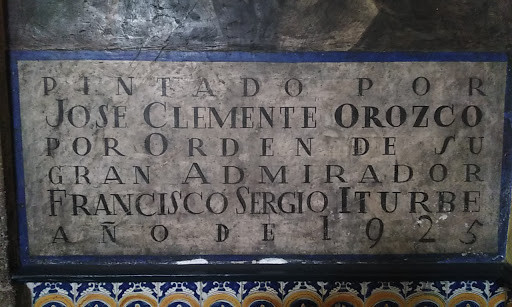 PINTADO POR
JOSE CLEMENTE OROZCO
POR ORDEN DE SU
GRAN ADMIRADOR
FRANCISCO SERGIO ITURBE
AÑO DE 1925